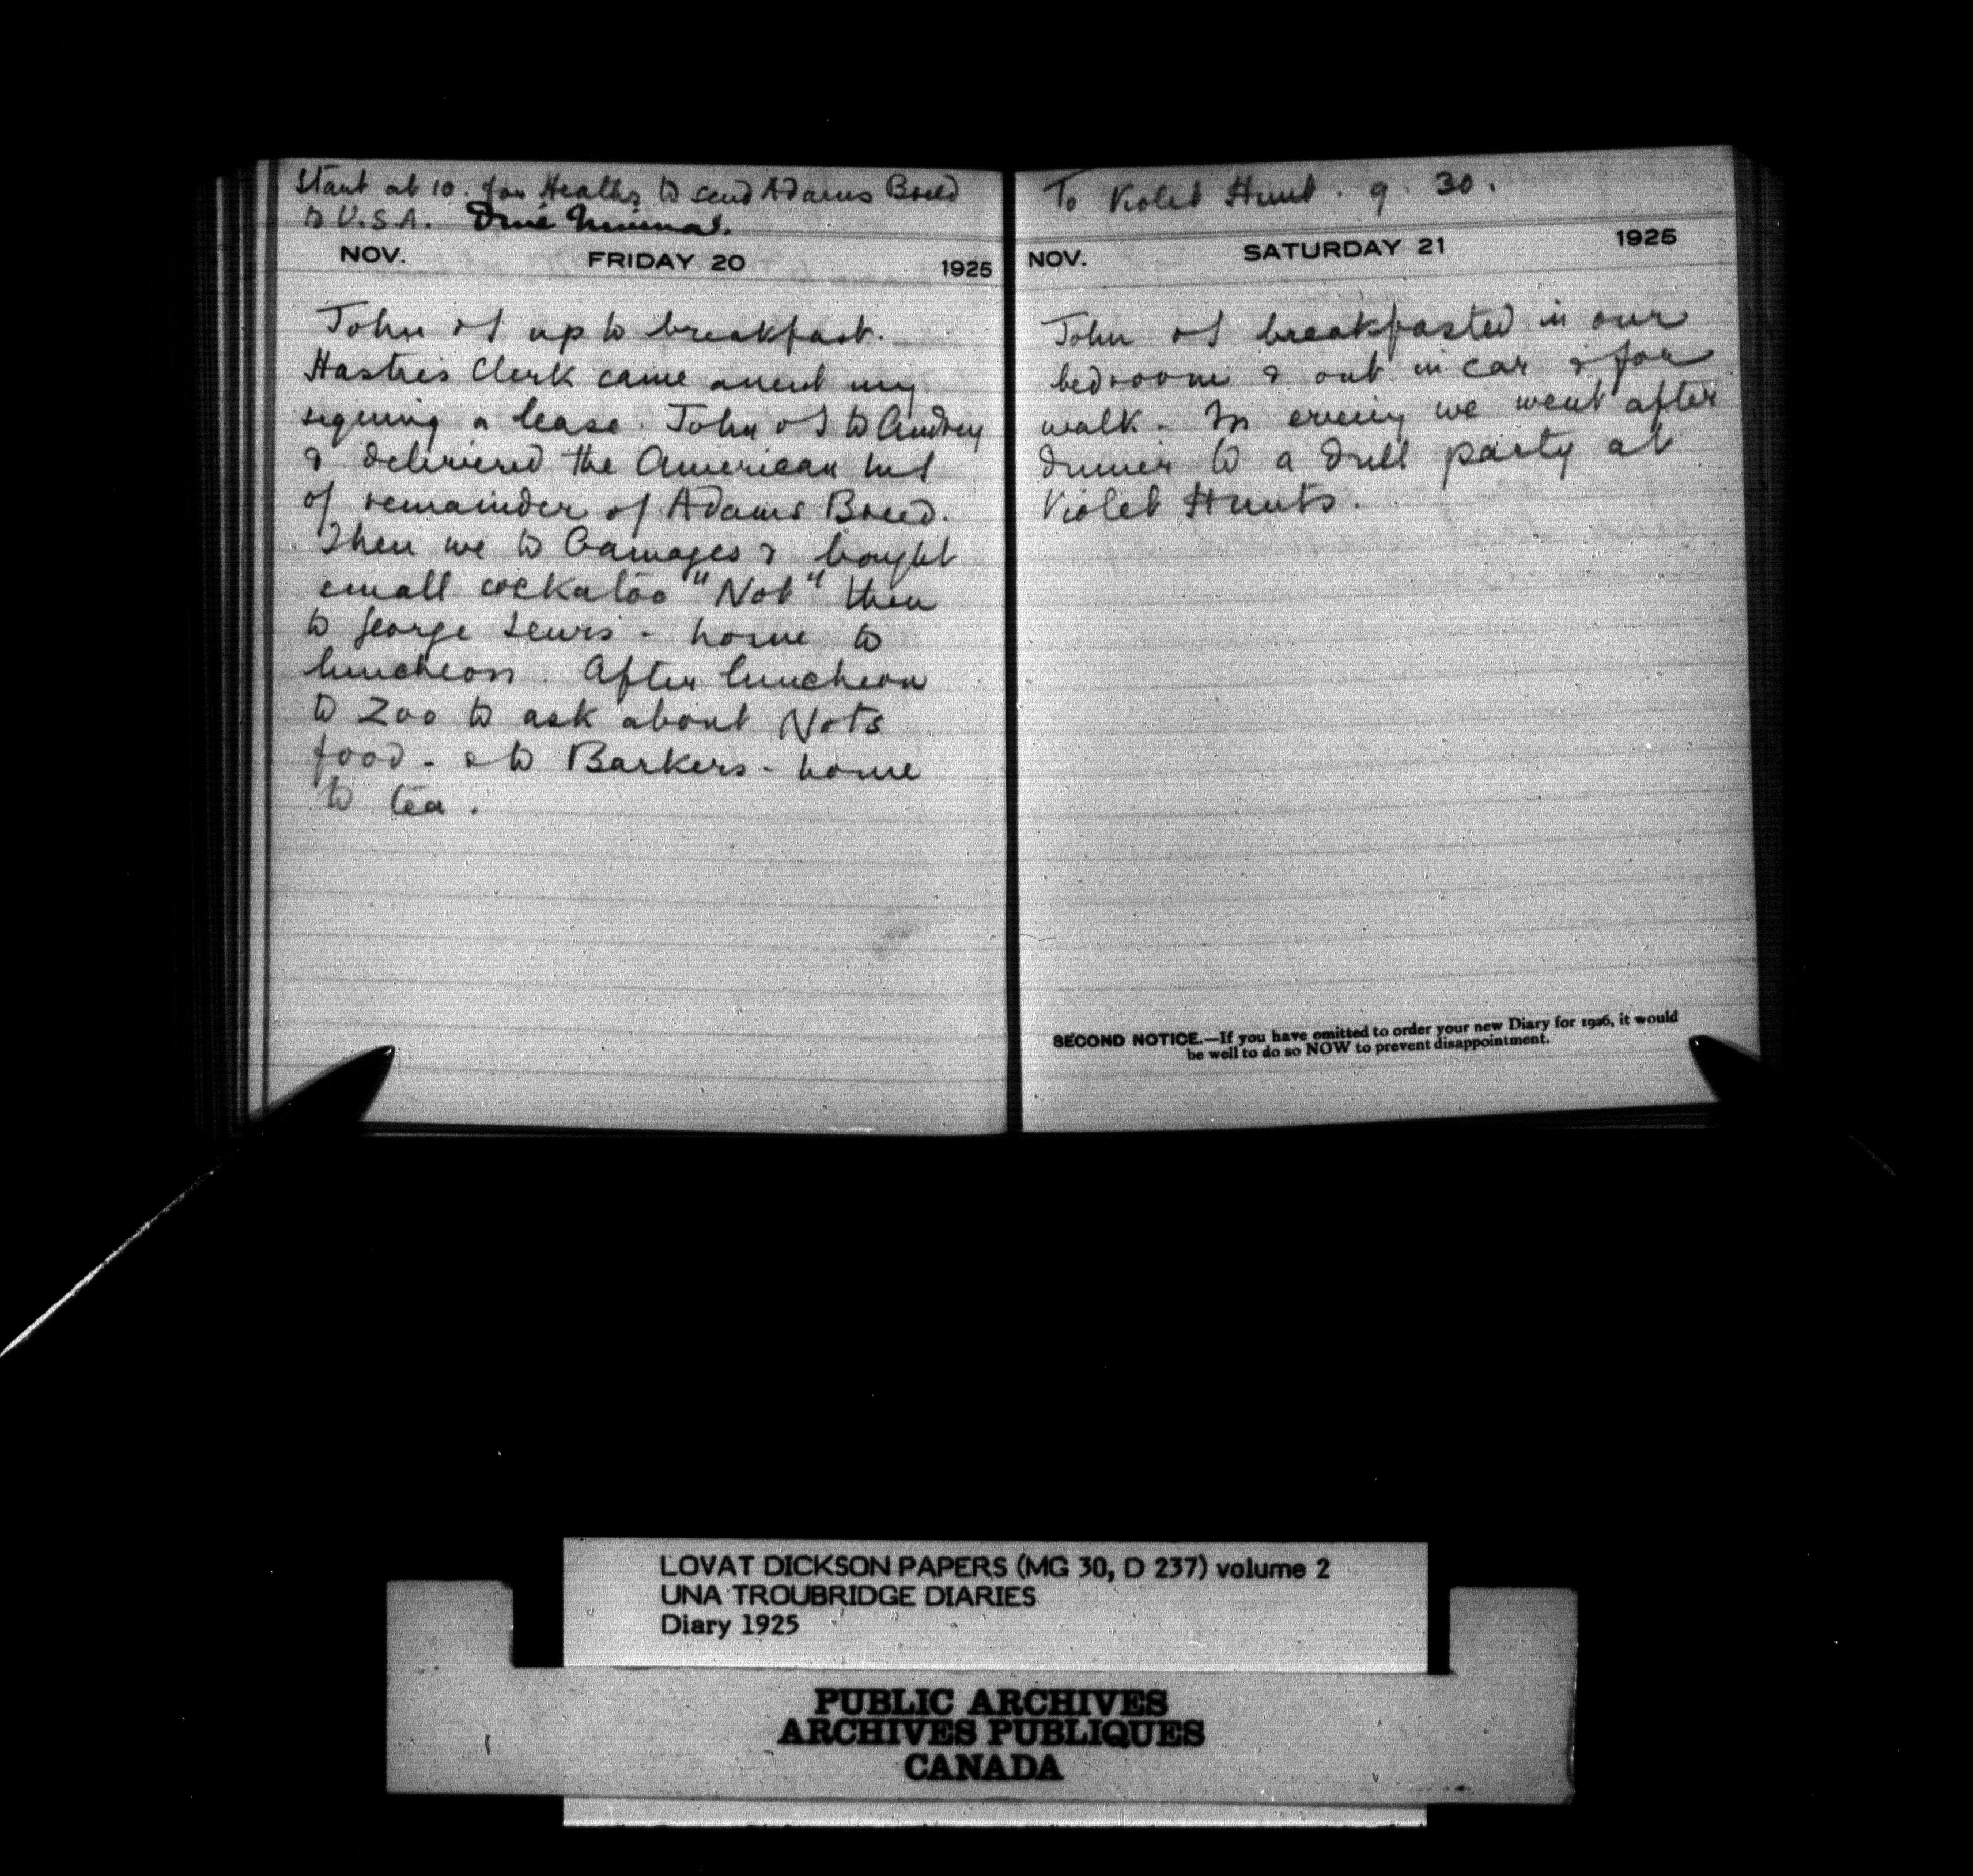 Start at 10. for Heaths to send Adams Breed
to U.S.A.
NOV. FRIDAY 20 1925
John & I up to breakfast.
Hasties Clerk came anent my
signing a lease. John & I to Audrey
& delivered the American
of remainder of Adams Breed.
Then we to Gamages & bought
small cockatoo "Not" then
to George Lewis - home to
luncheon. After luncheon
to Zoo to ask about Nots
food - & to Barkers - home
to tea.
To Violet Hunt. 9. 30.
NOV. SATURDAY 21 1925
John & I breakfasted in our
bedroom & out in car & for
walk - In evening we went after
dinner to a dull party at
Violet Hunts.
SECOND NOTICE.—If you have omitted to order your new Diary for 1926, it would
be well to do so NOW to prevent disappointment.
LOVAT DICKSON PAPERS (MG 30, D 237) volume 2
UNA TROUBRIDGE DIARIES
Diary 1925
PUBLIC ARCHIVES
ARCHIVES PUBLIQUES
CANADA